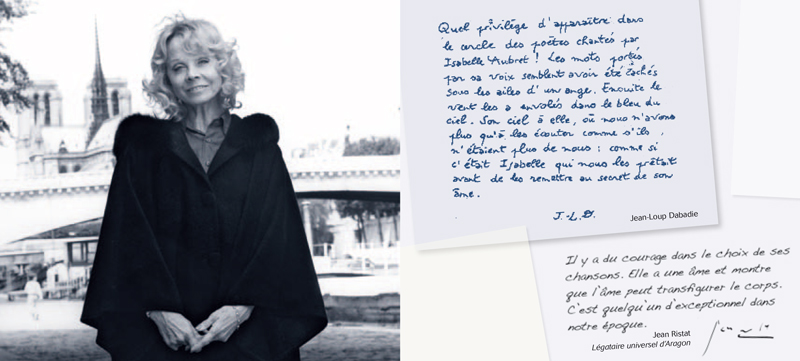 Quel privilège d'apparaître dans
le cercle des poètes chantés par
Isabelle Aubret ! Les mots portés
par sa voix semblent avoir été cachés
sous les ailes d'un ange. Ensuite le
vent les a envolés dans le bleu du
ciel. Son ciel à elle, où nous n'avons
plus qu'à les écouter comme s'ils,
n'étaient plus de nous : comme si
c'était Isabelle qui nous les prêtait
avant de les remettre au secret de son
âme.
J.-L.D.
Jean-Loup Dabadie
Il y a du courage dans le choix de ses
chansons. Elle a une âme et montre
que l'âme peut transfigurer le corps.
C'est quelqu'un d'exceptionnel dans
notre époque.
Jean Ristat
Légataire universel d'Aragon